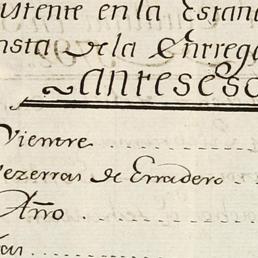 istente en la Estan
nsta de la Entrega
Vientre
ezerras de Erradero
Año